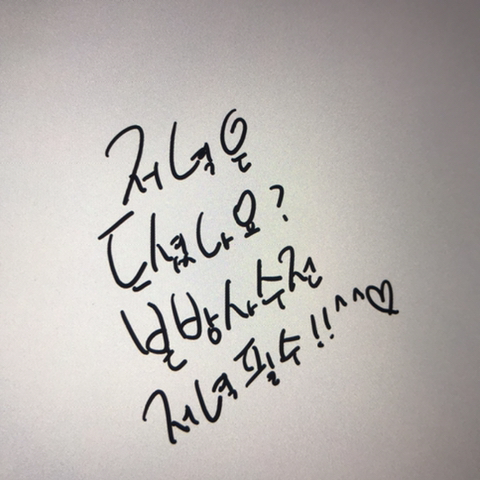 저녁은
드셨나요?
본방사수전
저녁 필수!!^^♡